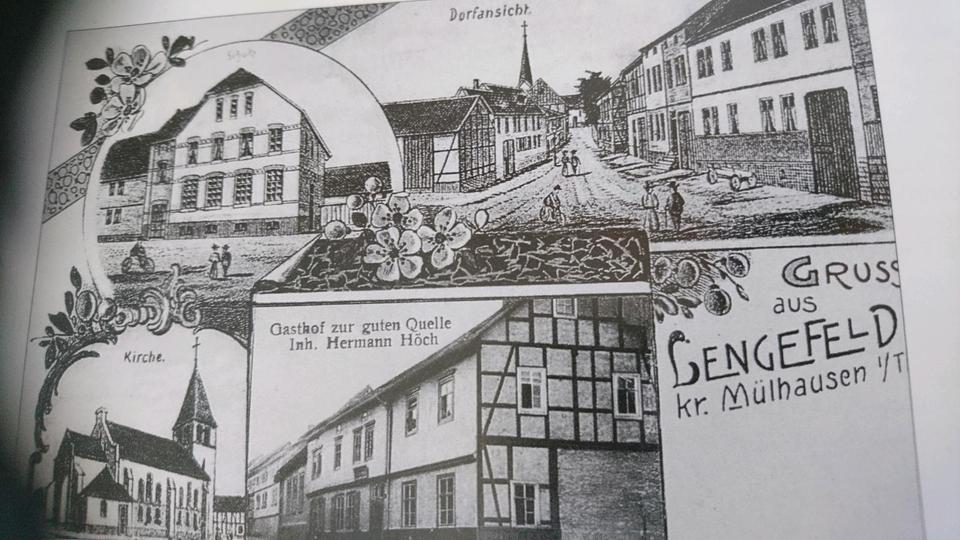 Dorfansicht.
Schule
Gasthof zur guten Quelle
Inh. Hermann Höch
Kirche.
GRUSS
aus
LENGEFELD
kr. Mülhausen i/T